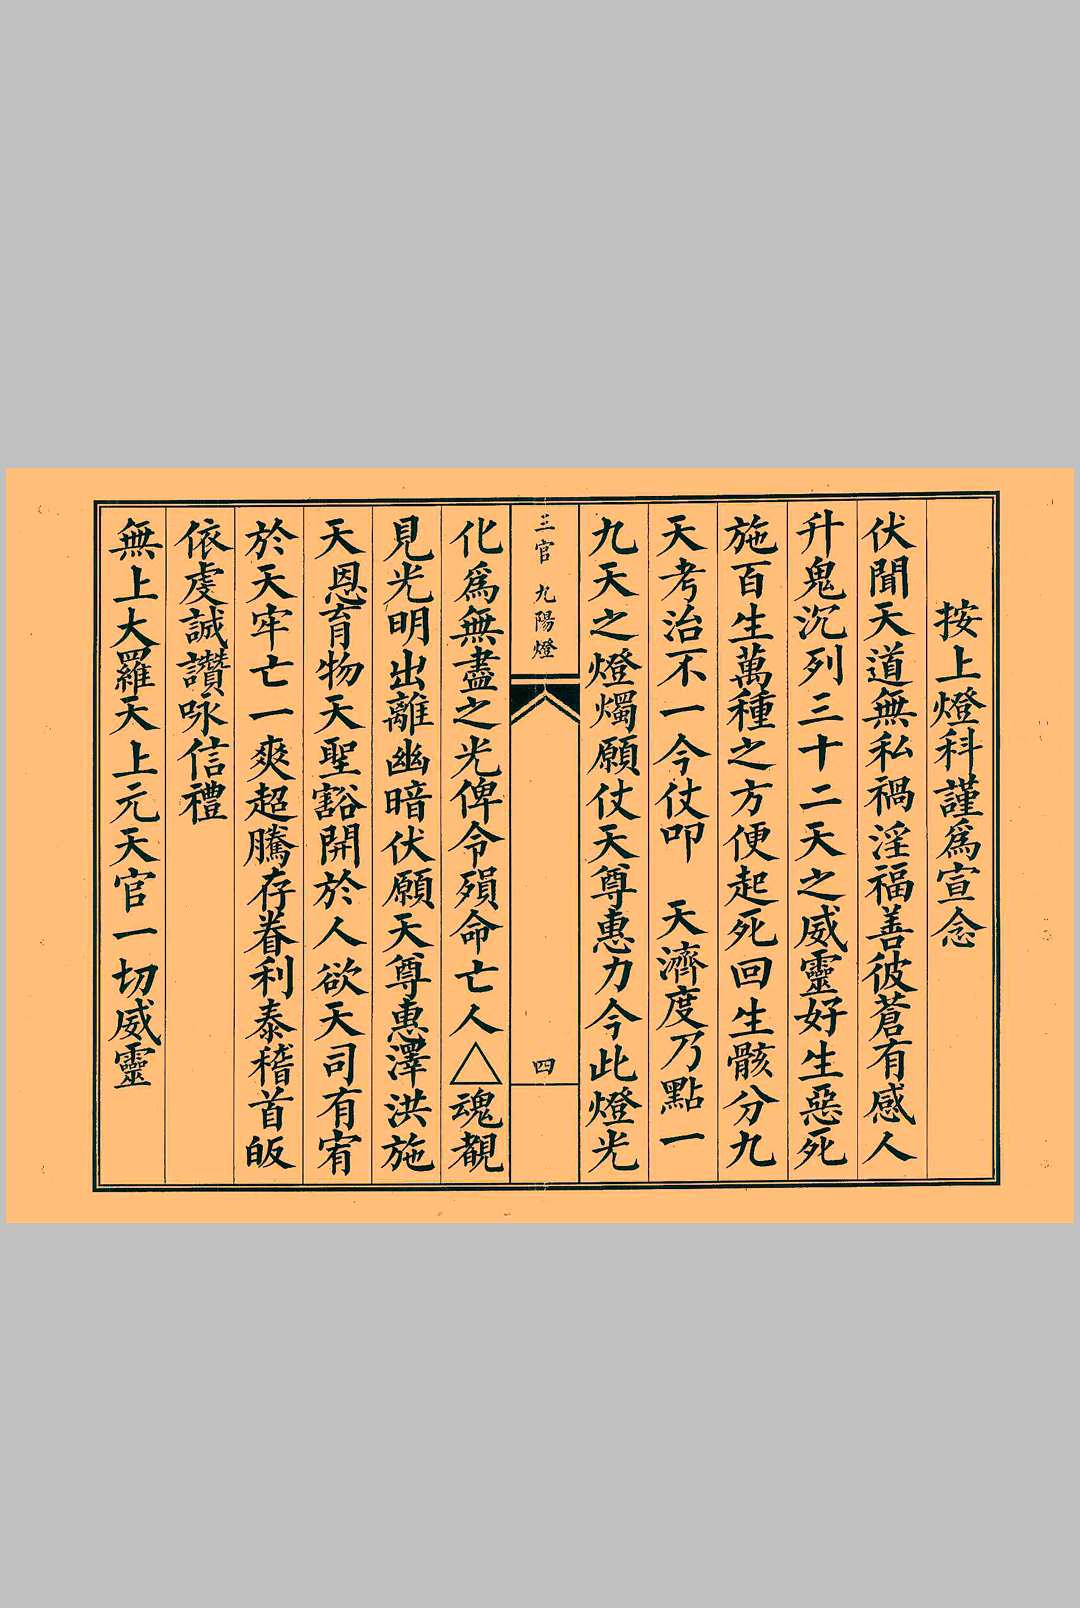 按上燈科謹為宣念
伏聞天道無私禍淫福善彼蒼有感人
升鬼沉列三十二天之威靈好生惡死
施百生萬種之方便起死回生骸分九
天考治不一今仗叩　天濟度乃點一
九天之燈燭願仗天尊惠力今此燈光
三官 九陽燈 四
化為無盡之光俾令殞命亡人△魂覩
見光明出離幽暗伏願天尊惠澤洪施
天恩育物天聖豁開於人欲天司有宥
於天牢亡一爽超騰存眷利泰稽首皈
依虔誠讚咏信禮
無上大羅天上元天官一切威靈